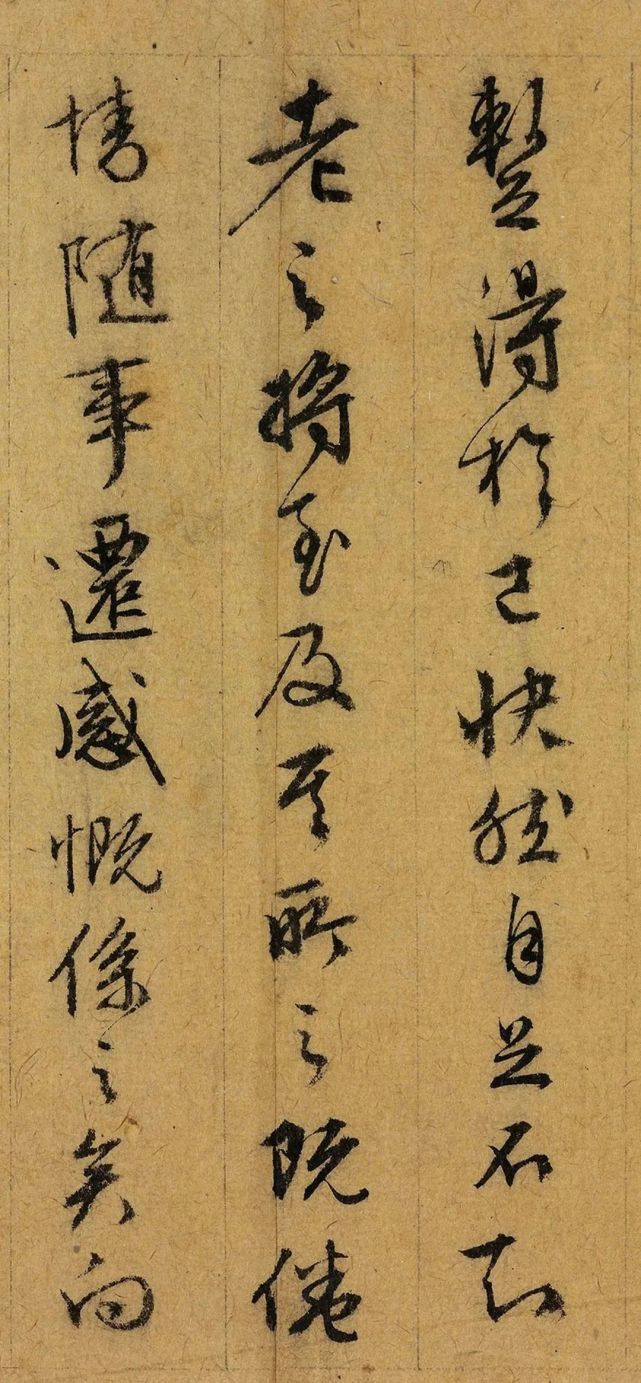 暫得於己快然自足不知
老之將至及其所之既倦
情隨事遷感慨係之矣向